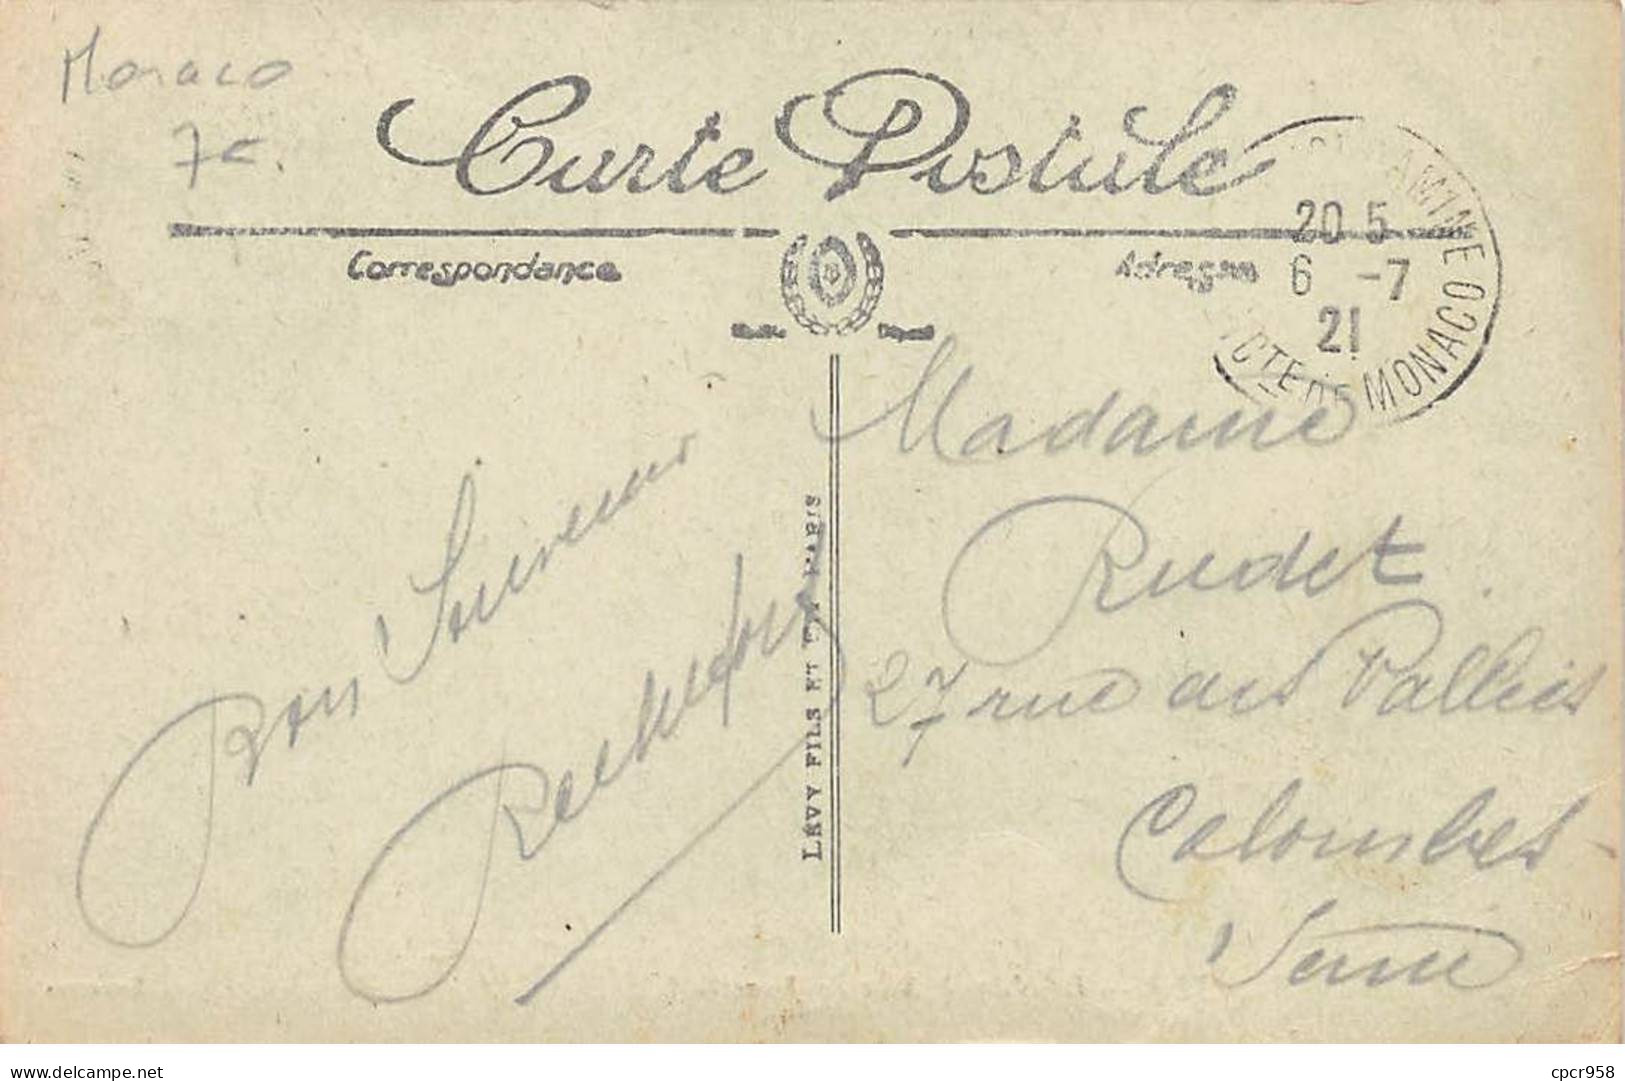 Monaco
7c.
Carte Postale
Correspondance
Adresse
LA CONDAMINE
20 5
6 -7
21
PCTE DE MONACO
LÉVY FILS ET CIE, PARIS
Bon Souvenir
Madame
Rudet
27 rue des Vallées
Colombes
Seine
delcampe.net
cpcr958